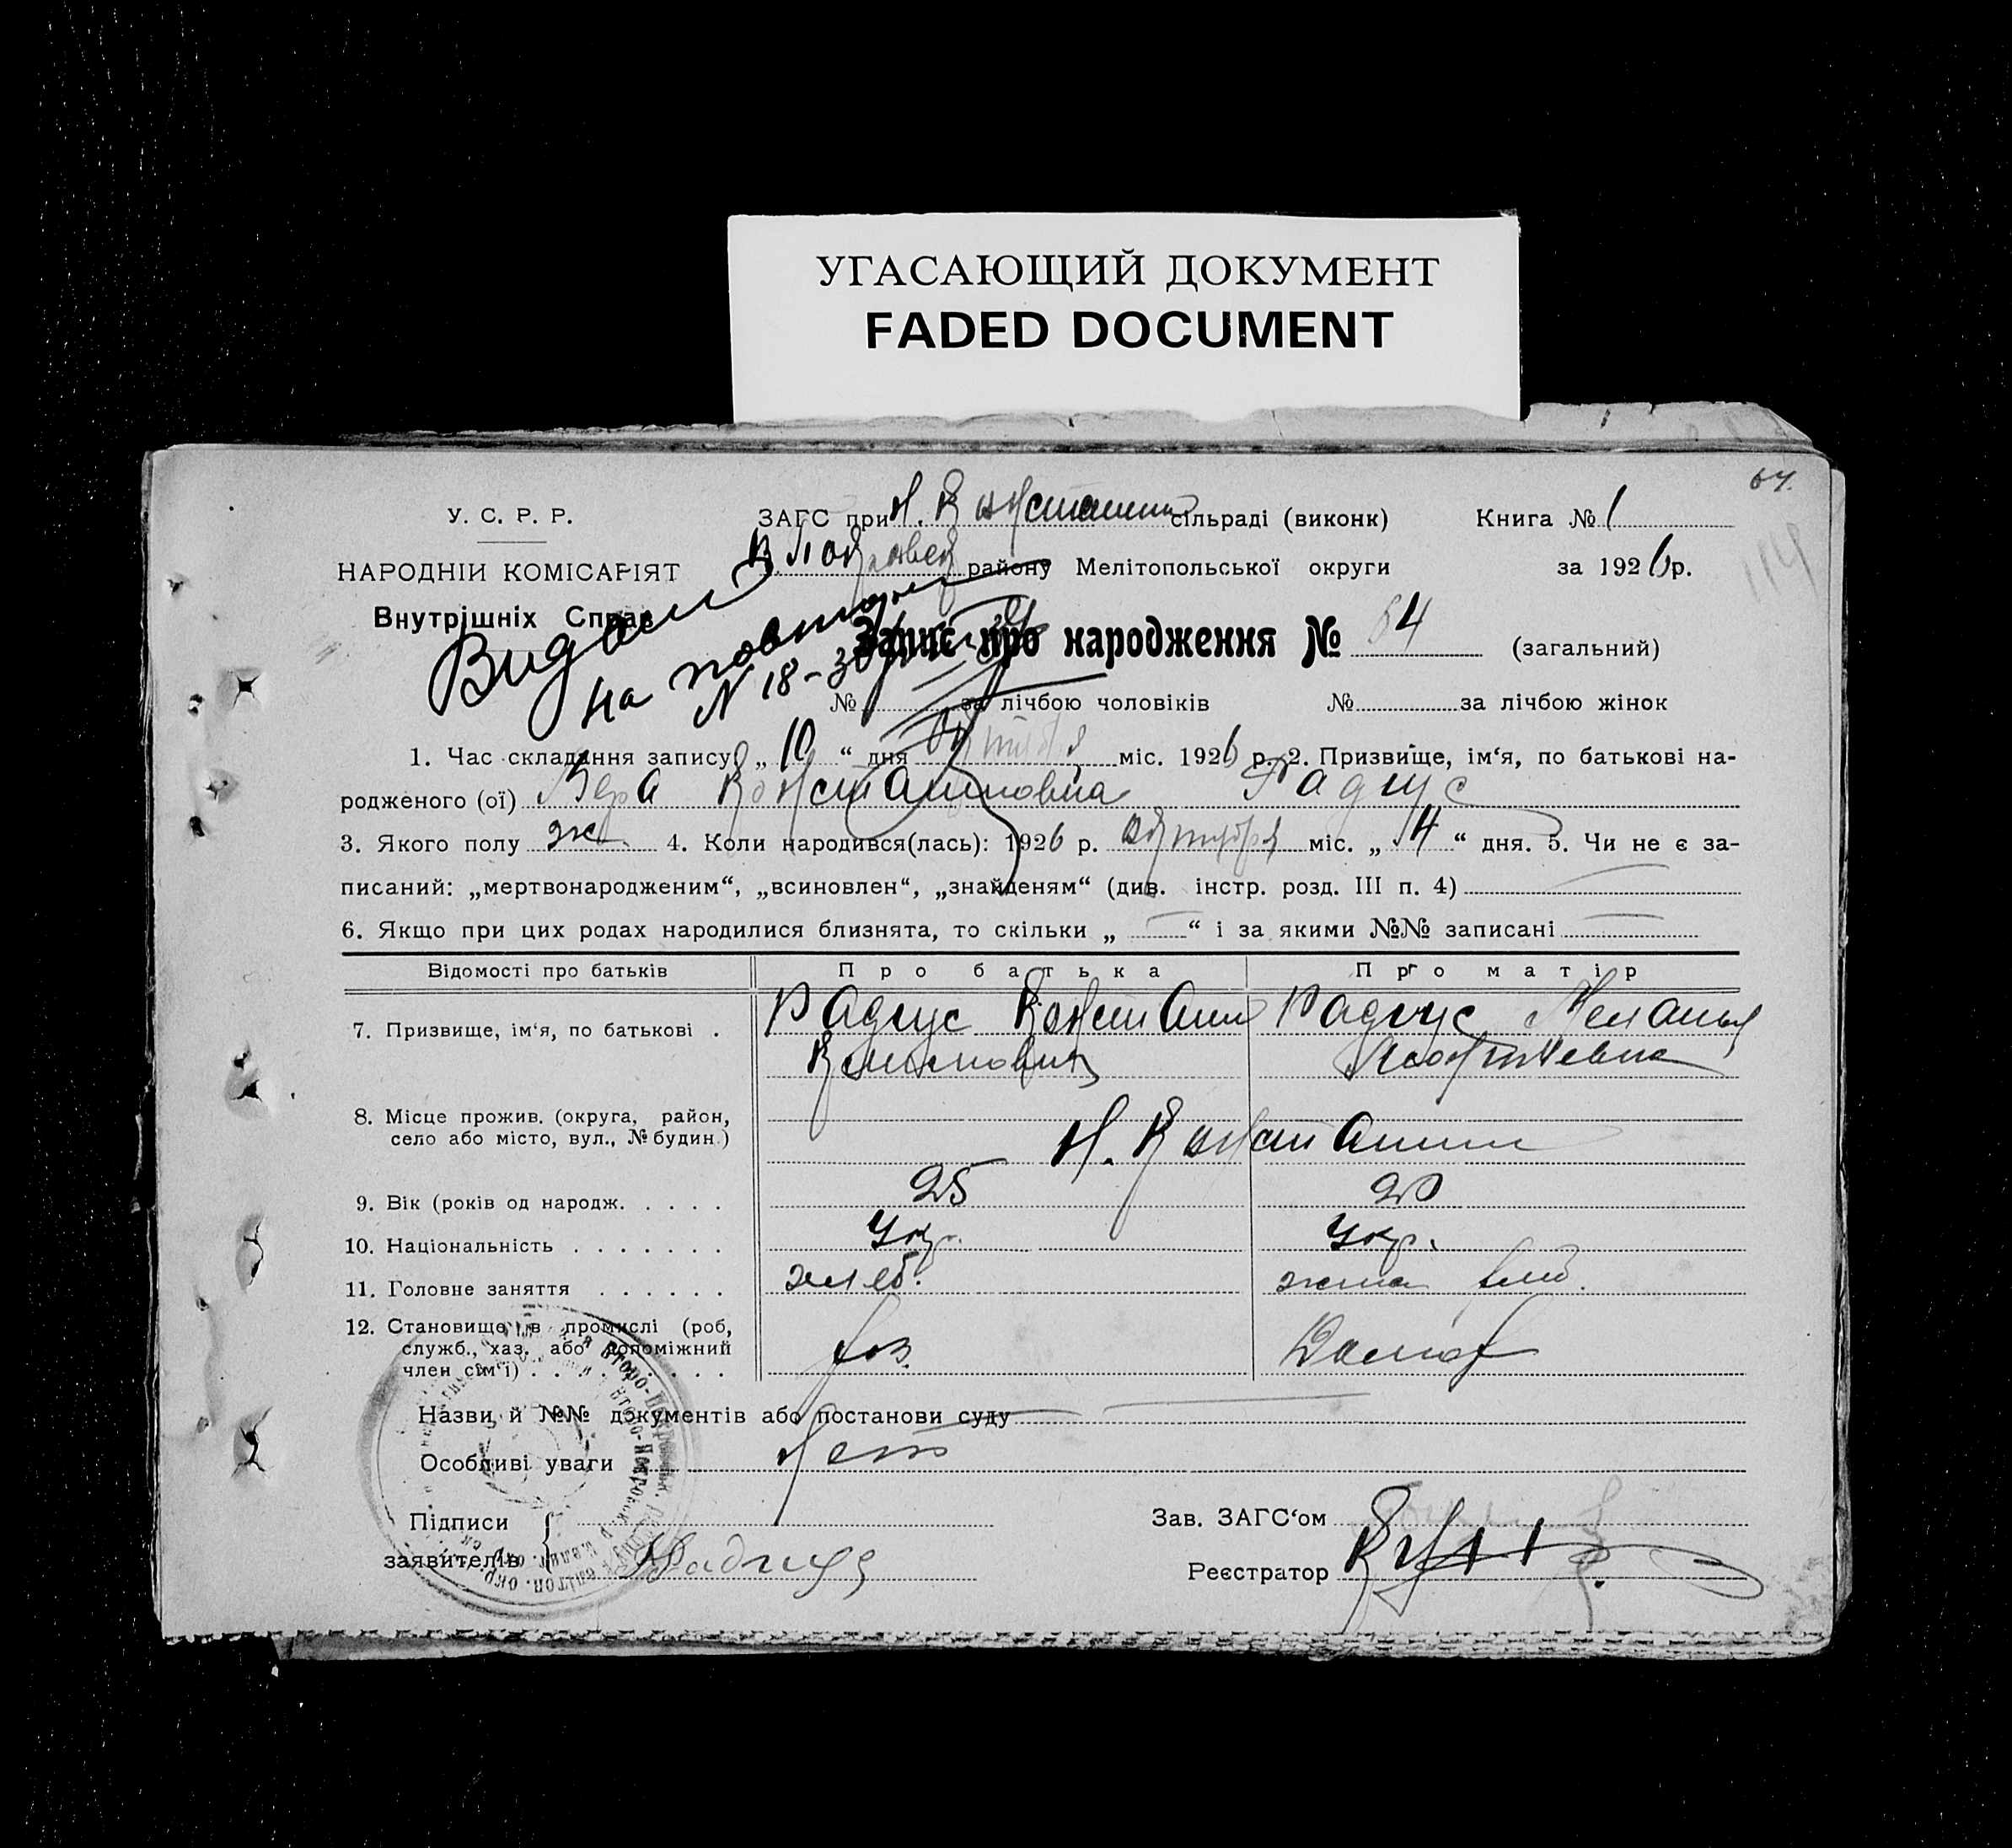 УГАСАЮЩИЙ ДОКУМЕНТ
FADED DOCUMENT
64.
114
У. С. Р. Р.
НАРОДНІЙ КОМІСАРІЯТ
Внутрішніх Справ
ЗАГС при Н. Констант сільраді (виконк)
Книга № 1
району Мелітопольської округи
за 1926 р.
Видан
на повтор
N 18-
Запис про народження № 64 (загальний)
№ за лічбою чоловіків № за лічбою жінок
1. Час складання запису „ 10 “ дня октября міс. 1926 р. 2. Призвище, ім‘я, по батькові на-
родженого (ої) Вера Константиновна Радчус
3. Якого полу ж. 4. Коли народився(лась): 1926 р. октября міс. „ 4 “ дня. 5. Чи не є за-
писаний: „мертвонародженим“, „всиновлен“, „знайденям“ (див. інстр. розд. III п. 4)
6. Якщо при цих родах народилися близнята, то скільки „ — “ і за якими №№ записані —
Відомості про батьків Про батька Про матір
7. Призвище, ім‘я, по батькові . Радчус Констант Радчус Меланья
8. Місце прожив. (округа, район,
село або місто, вул., № будин.) Н. Константин
9. Вік (років од народж. . . . . 25 20
10. Національність . . . . . . . Укр. Укр.
11. Головне заняття . . . . . . хлеб. жена хлеб.
12. Становище в промислі (роб,
служб., хаз. або допоміжний
член сім‘ї) . . . . . . . . . хоз. Домох
Назви й №№ документів або постанови суду —
Особливі уваги нет
Підписи
заявителів Радчус
Зав. ЗАГС‘ом
Реєстратор